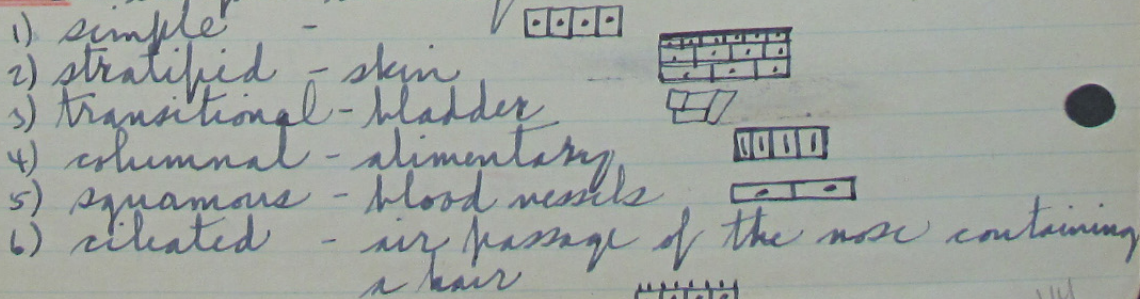 1) simple -
2) stratified - skin
3) transitional - bladder
4) columnal - alimentary
5) squamous - blood vessels
6) ciliated - air passage of the nose containing
a hair